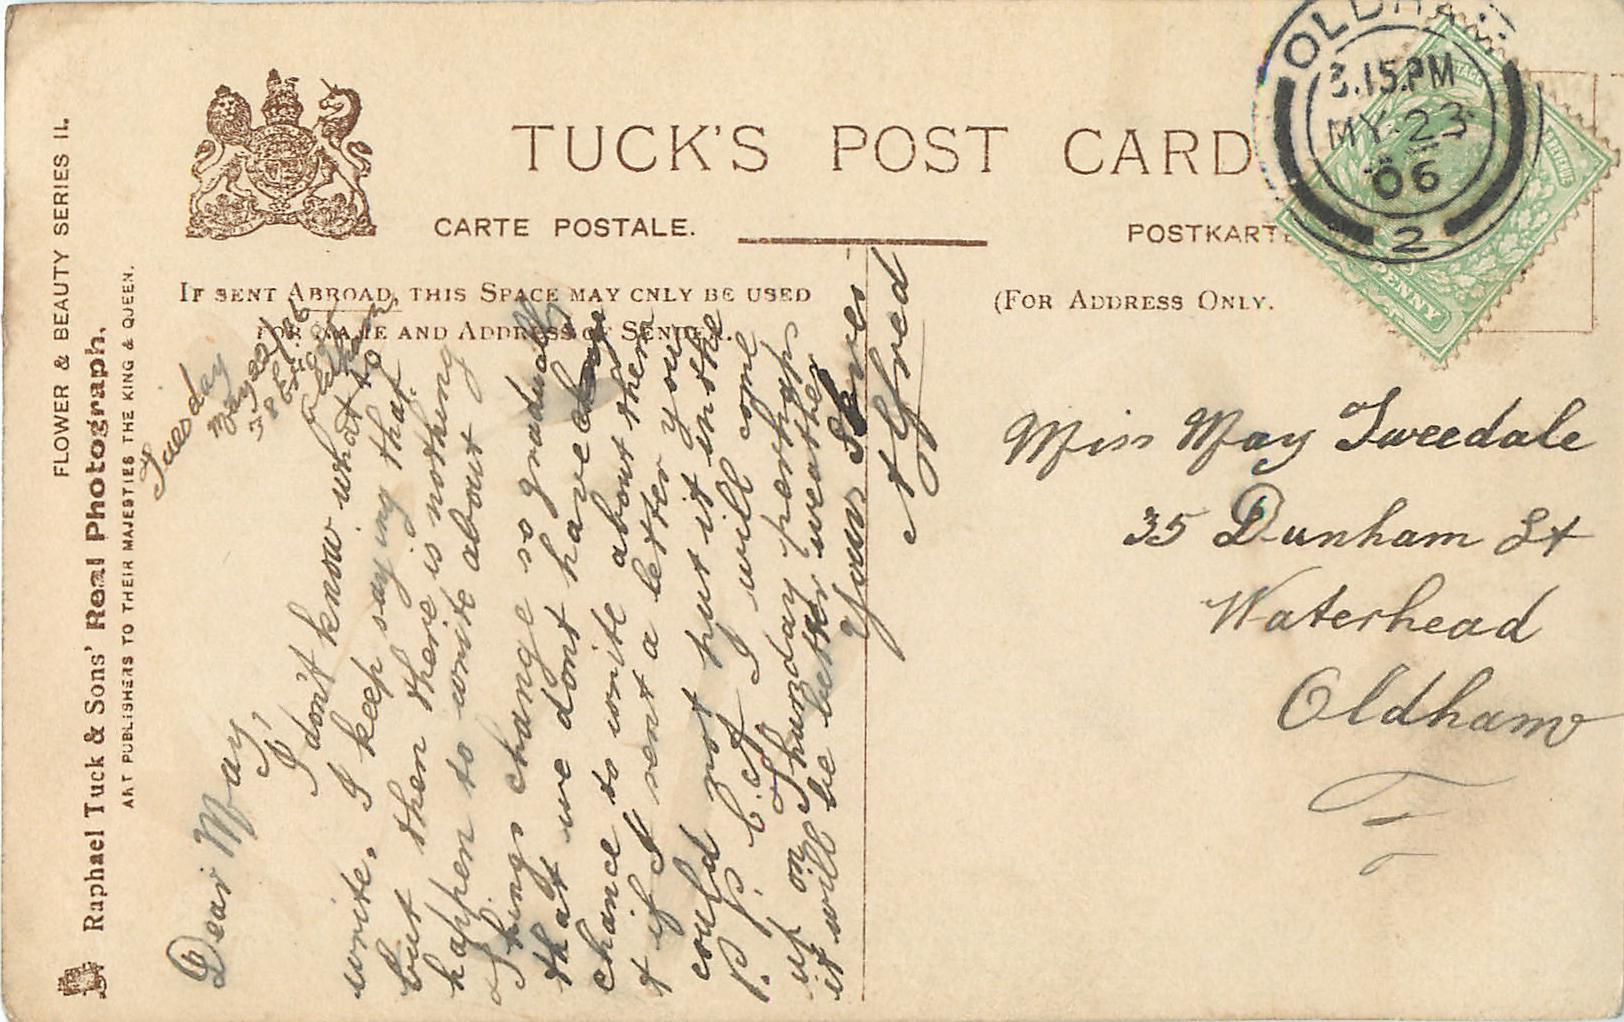 FLOWER & BEAUTY SERIES II.
Raphael Tuck & Sons' Real Photograph.
ART PUBLISHERS TO THEIR MAJESTIES THE KING & QUEEN.
TUCK'S POST CARD
CARTE POSTALE.
POSTKARTE
IF SENT ABROAD, THIS SPACE MAY ONLY BE USED
FOR NAME AND ADDRESS OF SENDER.
(FOR ADDRESS ONLY.
OLDHAM
3.15.PM
MY 23
06
2
POSTAGE
PENNY
Tuesday
May 22/06
Oldham
Dear May,
I don't know what to
write. I keep saying that
but then there is nothing
happen to write about
Things change so gradually
that we dont have
chance to write about them
+ if I sent a letter you
could not put it in the
P. P. C. A I will come
up on Thursday perhaps
it will be better weather
Yours
Alfred
Miss May Tweedale
35 Dunham St
Waterhead
Oldham